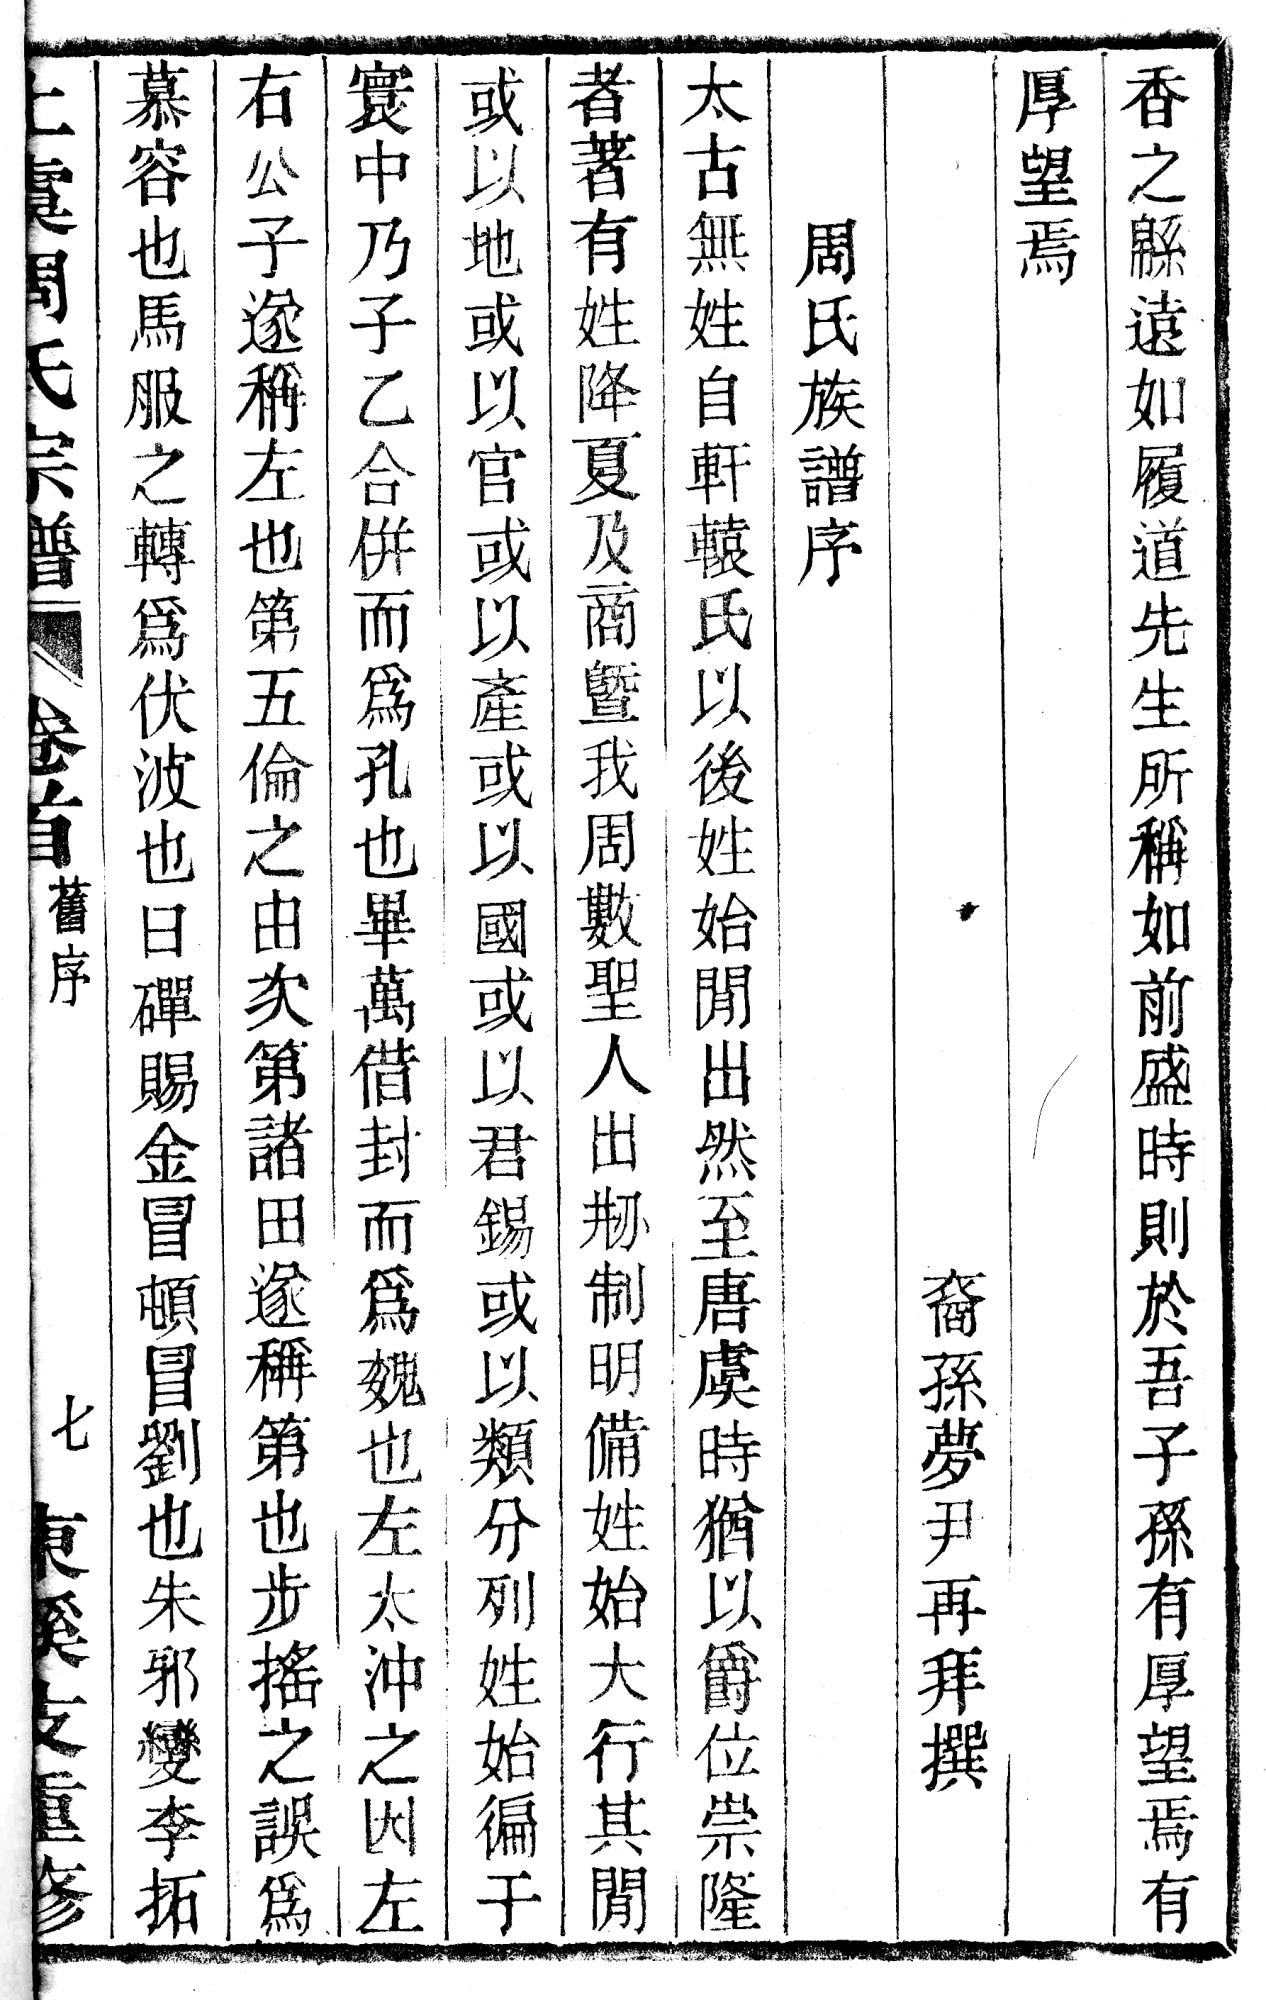 香之緜遠如履道先生所稱如前盛時則於吾子孫有厚望焉有
厚望焉
裔孫夢尹再拜撰
周氏族譜序
太古無姓自軒轅氏以後姓始閒出然至唐虞時猶以爵位崇隆
者著有姓降夏及商曁我周數聖人出刱制明備姓始大行其閒
或以地或以官或以產或以國或以君錫或以類分列姓始徧于
寰中乃子乙合併而爲孔也畢萬借封而爲魏也左太沖之因左
右公子遂稱左也第五倫之由次第諸田遂稱第也步搖之誤爲
慕容也馬服之轉爲伏波也日磾賜金冒頓冒劉也朱邪變李拓
上虞周氏宗譜 卷首 舊序 七 東溪支重修